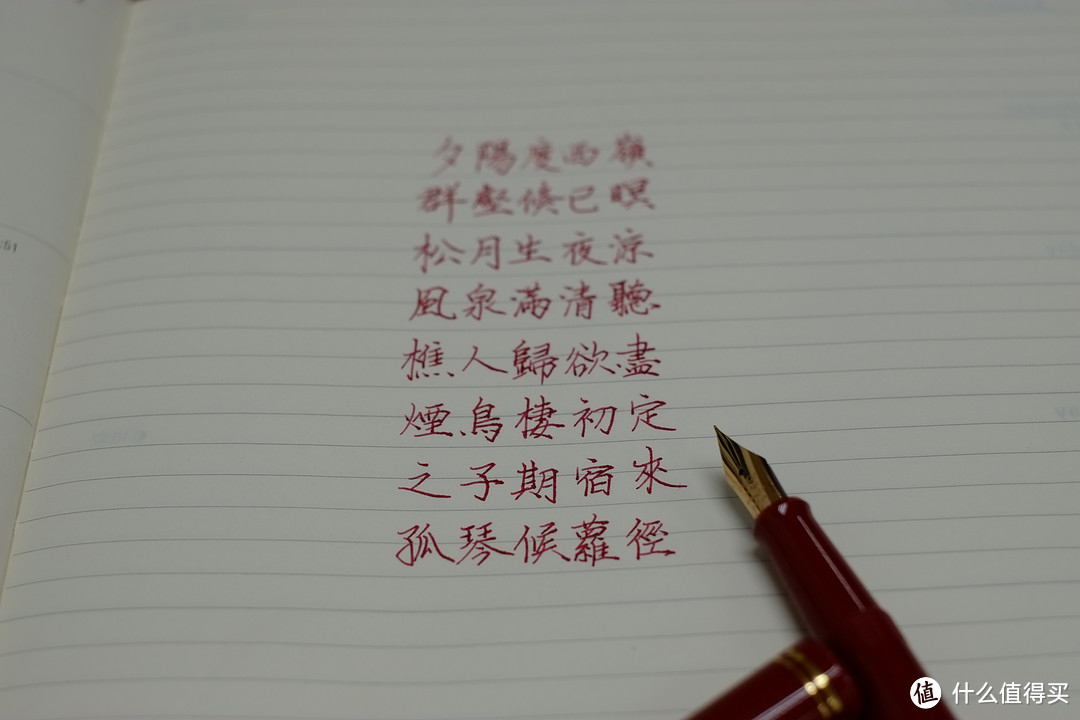 夕陽度西嶺
群壑倏已暝
松月生夜涼
風泉滿清聽
樵人歸欲盡
煙鳥棲初定
之子期宿來
孤琴候蘿徑
:51
值 什么值得买